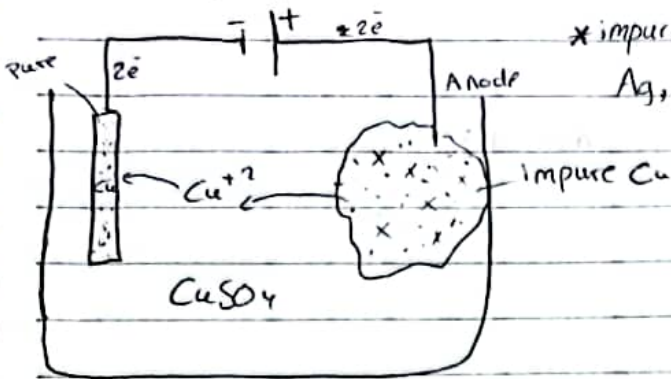 - + 2e̅ * impur
pure 2e̅ Anode Ag,
Cu Cu+2 impure Cu
CuSO4